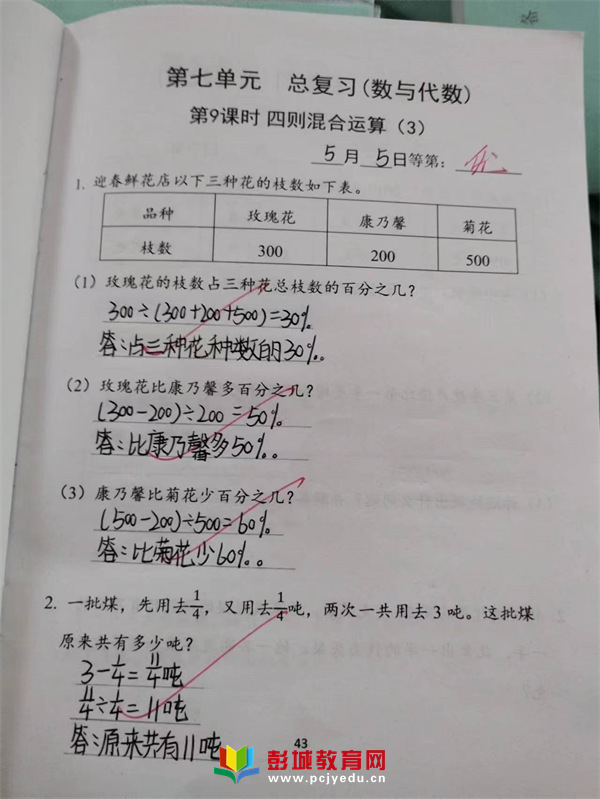 第七单元 总复习(数与代数)
第9课时 四则混合运算(3)
5月5日等第:优
1. 迎春鲜花店以下三种花的枝数如下表。
品种 玫瑰花 康乃馨 菊花
枝数 300 200 500
(1) 玫瑰花的枝数占三种花总枝数的百分之几?
300÷(300+200+500)=30%
答:占三种花种数的30%。
(2) 玫瑰花比康乃馨多百分之几?
(300-200)÷200=50%
答:比康乃馨多50%。
(3) 康乃馨比菊花少百分之几?
(500-200)÷500=60%
答:比菊花少60%。
2. 一批煤,先用去1/4,又用去1/4吨,两次一共用去3吨。这批煤
原来共有多少吨?
3-1/4=11/4吨
11/4÷1/4=11吨
答:原来共有11吨
43
彭城教育网
www.pcjyedu.cn